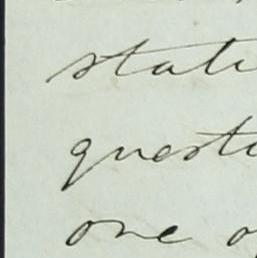 state
questi
one o